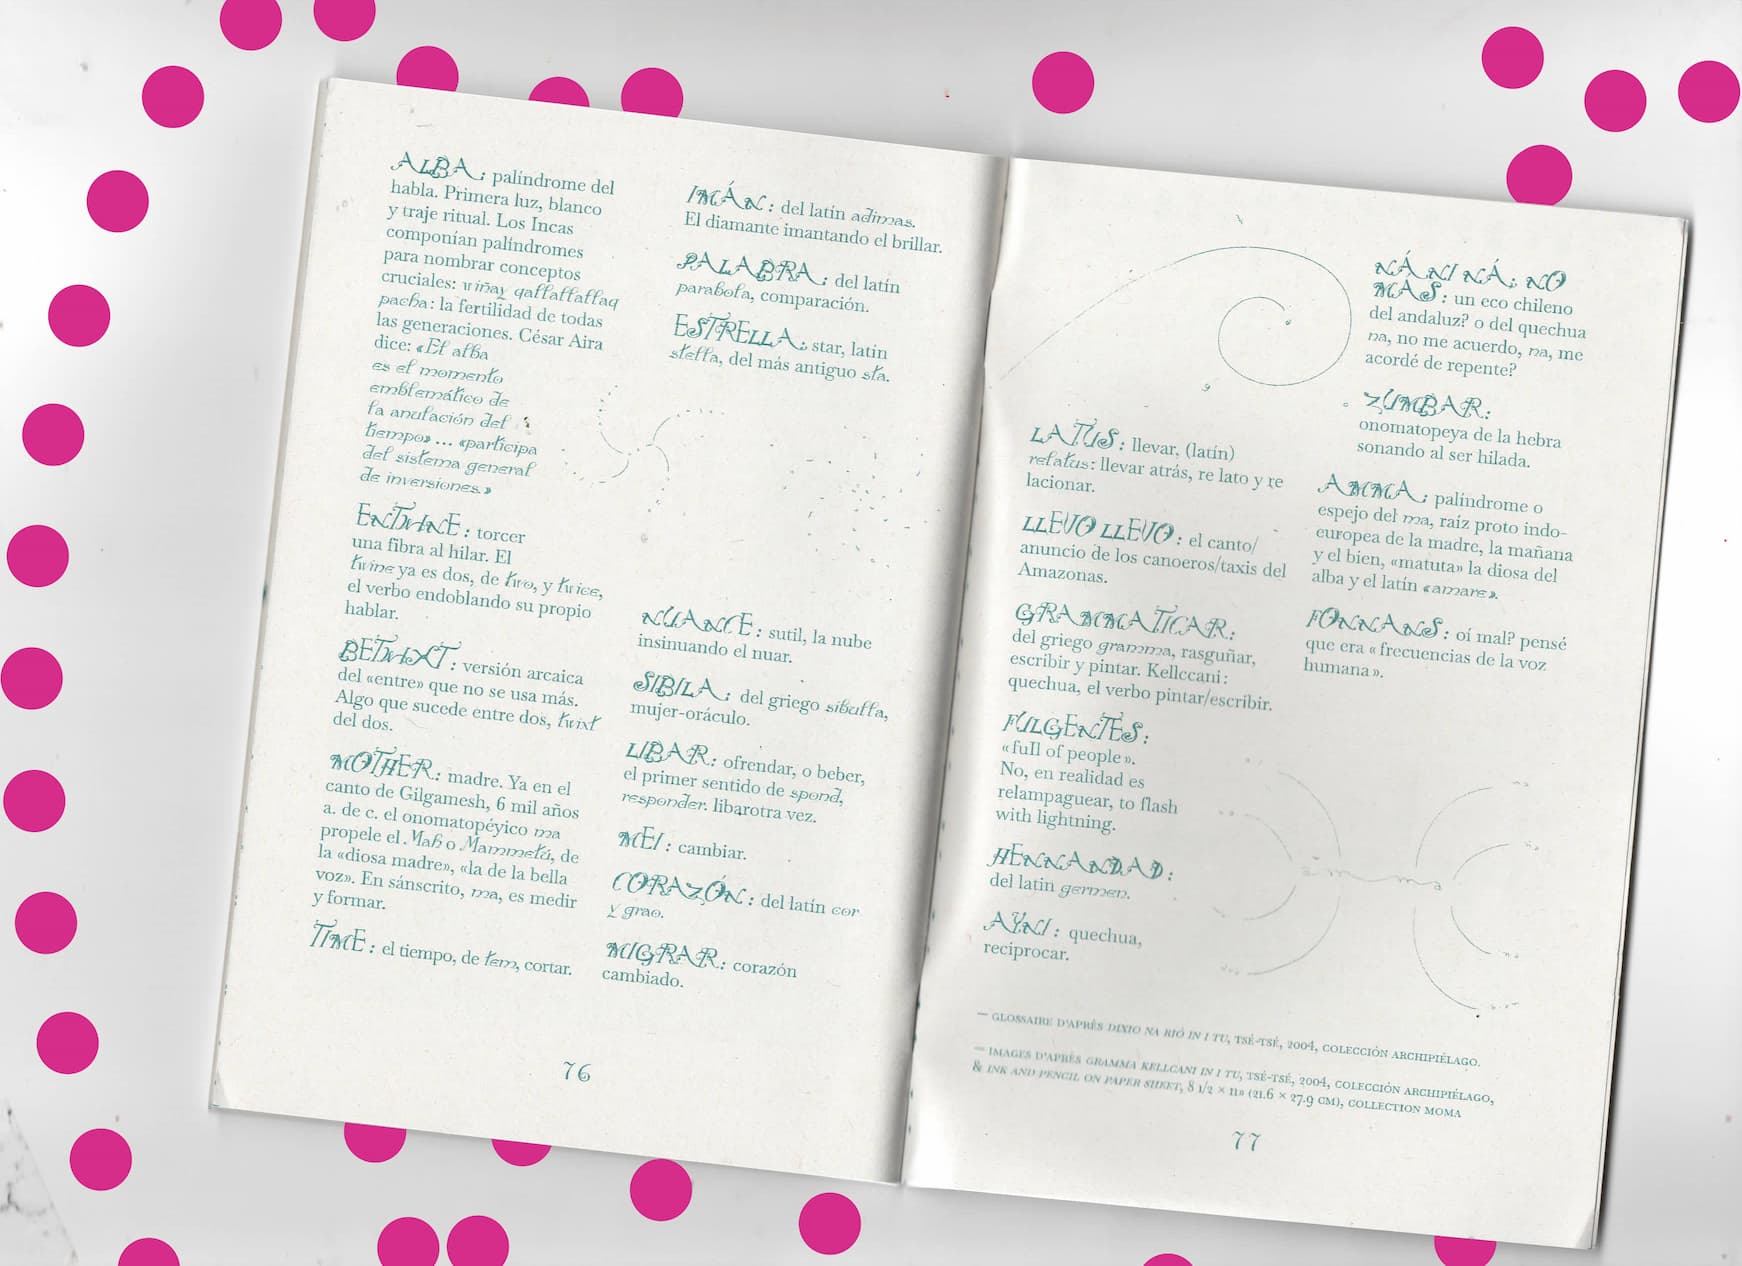 ALBA : palíndrome del
habla. Primera luz, blanco
y traje ritual. Los Incas
componían palíndromes
para nombrar conceptos
cruciales: wiñay qallallallaq
pacha : la fertilidad de todas
las generaciones. César Aira
dice: «El alba
es el momento
emblemático de
la anulación del
tiempo» ... «participa
del sistema general
de inversiones.»
ENTWINE : torcer
una fibra al hilar. El
twine ya es dos, de two, y twice,
el verbo endoblando su propio
hablar.
BETWIXT : versión arcaica
del «entre» que no se usa más.
Algo que sucede entre dos, twixt
del dos.
MOTHER : madre. Ya en el
canto de Gilgamesh, 6 mil años
a. de c. el onomatopéyico ma
propele el Mah o Mammetú, de
la «diosa madre», «la de la bella
voz». En sánscrito, ma, es medir
y formar.
TIME : el tiempo, de tem, cortar.
IMÁN : del latín adimas.
El diamante imantando el brillar.
PALABRA : del latín
parabola, comparación.
ESTRELLA : star, latín
stella, del más antiguo sta.
NUANCE : sutil, la nube
insinuando el nuar.
SIBILA : del griego sibulla,
mujer-oráculo.
LIBAR : ofrendar, o beber,
el primer sentido de spond,
responder. libarotra vez.
MEI : cambiar.
CORAZÓN : del latín cor
y grao.
MIGRAR : corazón
cambiado.
76
LATUS : llevar, (latín)
relatus : llevar atrás, re lato y re
lacionar.
LLEVO LLEVO : el canto/
anuncio de los canoeros/taxis del
Amazonas.
GRAMMATICAR :
del griego gramma, rasguñar,
escribir y pintar. Kellccani :
quechua, el verbo pintar/escribir.
FULGENTES :
«full of people».
No, en realidad es
relampaguear, to flash
with lightning.
HENNANDAD :
del latin germen.
AYNI : quechua,
reciprocar.
NÁ NI NÁ : NO
MÁS : un eco chileno
del andaluz? o del quechua
na, no me acuerdo, na, me
acordé de repente?
ZUMBAR :
onomatopeya de la hebra
sonando al ser hilada.
AMMA : palíndrome o
espejo del ma, raíz proto indo-
europea de la madre, la mañana
y el bien, «matuta» la diosa del
alba y el latín «amare».
FONNANS : oí mal? pensé
que era «frecuencias de la voz
humana».
— GLOSSAIRE D'APRÈS DIXIO NA RIÓ IN I TU, TSÉ-TSÉ, 2004, COLECCIÓN ARCHIPIÉLAGO.
— IMAGES D'APRÈS GRAMMA KELLCANI IN I TU, TSÉ-TSÉ, 2004, COLECCIÓN ARCHIPIÉLAGO,
& INK AND PENCIL ON PAPER SHEET, 8 1/2 × 11» (21.6 × 27.9 CM), COLLECTION MOMA
77